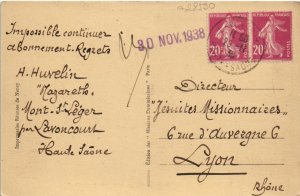 a 28530
Impossible continuer
abonnement. Regrets
30 NOV. 1938
20
20
A. Huvelin
"Nazareth"
Mont-St-Léger
par Lavoncourt
Haute Saône
Directeur
"Jésuites Missionnaires"
6 rue d'Auvergne 6
Lyon
Rhône
Imprimeries Réunies de Nancy